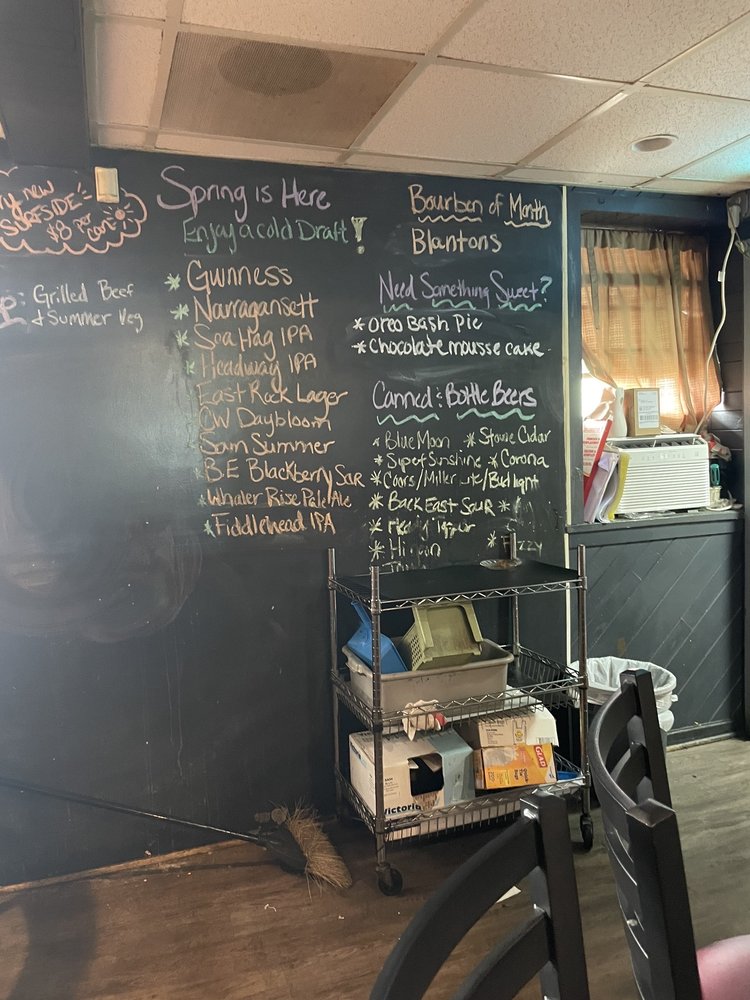 new
SURFSIDE
$8 per can
: Grilled Beef
+ Summer Veg
Spring is Here
Enjoy a cold Draft!
* Guinness
* Narragansett
* Sea Hag IPA
* Headway IPA
East Rock Lager
CW Daybloom
Sam Summer
B.E Blackberry Sour
* Whaler Rise Pale Ale
* Fiddlehead IPA
Bourbon of Month
Blantons
Need Something Sweet?
* Oreo Bash Pie
* Chocolate mousse cake
Canned & Bottle Beers
* Blue Moon * Stowe Cidar
* Super Sunshine * Corona
* Coors/Miller Lite/Bud light
* Back East Sour *
* Heady
*
GLAD
Victoria